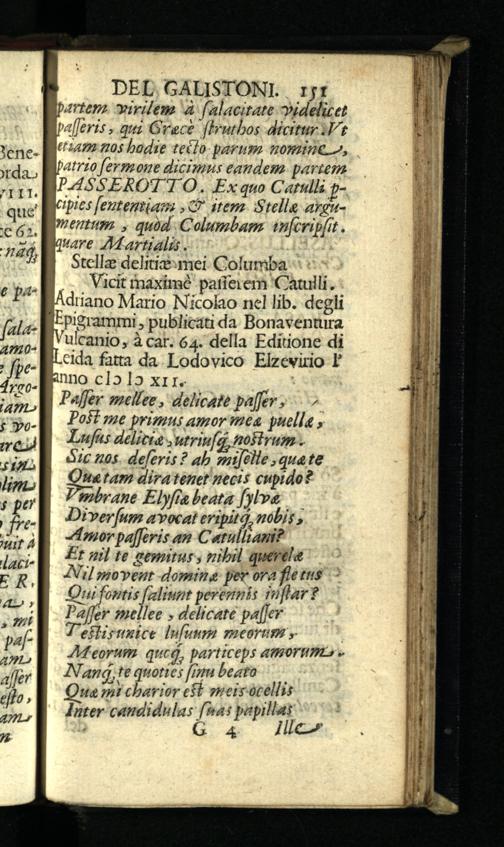 DEL GALISTONI. 151
partem virilem à salacitate videlicet
passeris, qui Græcè struthos dicitur. Vt
etiam nos hodie tecto parum nomine,
patrio sermone dicimus eandem partem
PASSEROTTO. Ex quo Catulli p-
cipies sententiam, & item Stellæ argu-
mentum, quòd Columbam inscripsit.
quare Martialis.
Stellæ delitiæ mei Columba
Vicit maximè passerem Catulli.
Adriano Mario Nicolao nel lib. degli
Epigrammi, publicati da Bonaventura
Vulcanio, à car. 64. della Editione di
Leida fatta da Lodovico Elzevirio l'
anno cIɔ Iɔ XII.
Passer mellee, delicate passer,
Post me primus amor meæ puellæ,
Lusus deliciæ, utriusq; nostrum.
Sic nos deseris? ah miselle, quæ te
Quæ tam dira tenet necis cupido?
Vmbrane Elysiæ beata sylvæ
Diversum avocat eripitq; nobis,
Amor passeris an Catulliani?
Et nil te gemitus, nihil querelæ
Nil movent dominæ per ora fletus
Qui fontis saliunt perennis instar?
Passer mellee, delicate passer
Testis unice lusuum meorum,
Meorum quoq; particeps amorum.
Nanq; te quoties sinu beato
Quæ mi charior est meis ocellis
Inter candidulas suas papillas
G 4 Ille